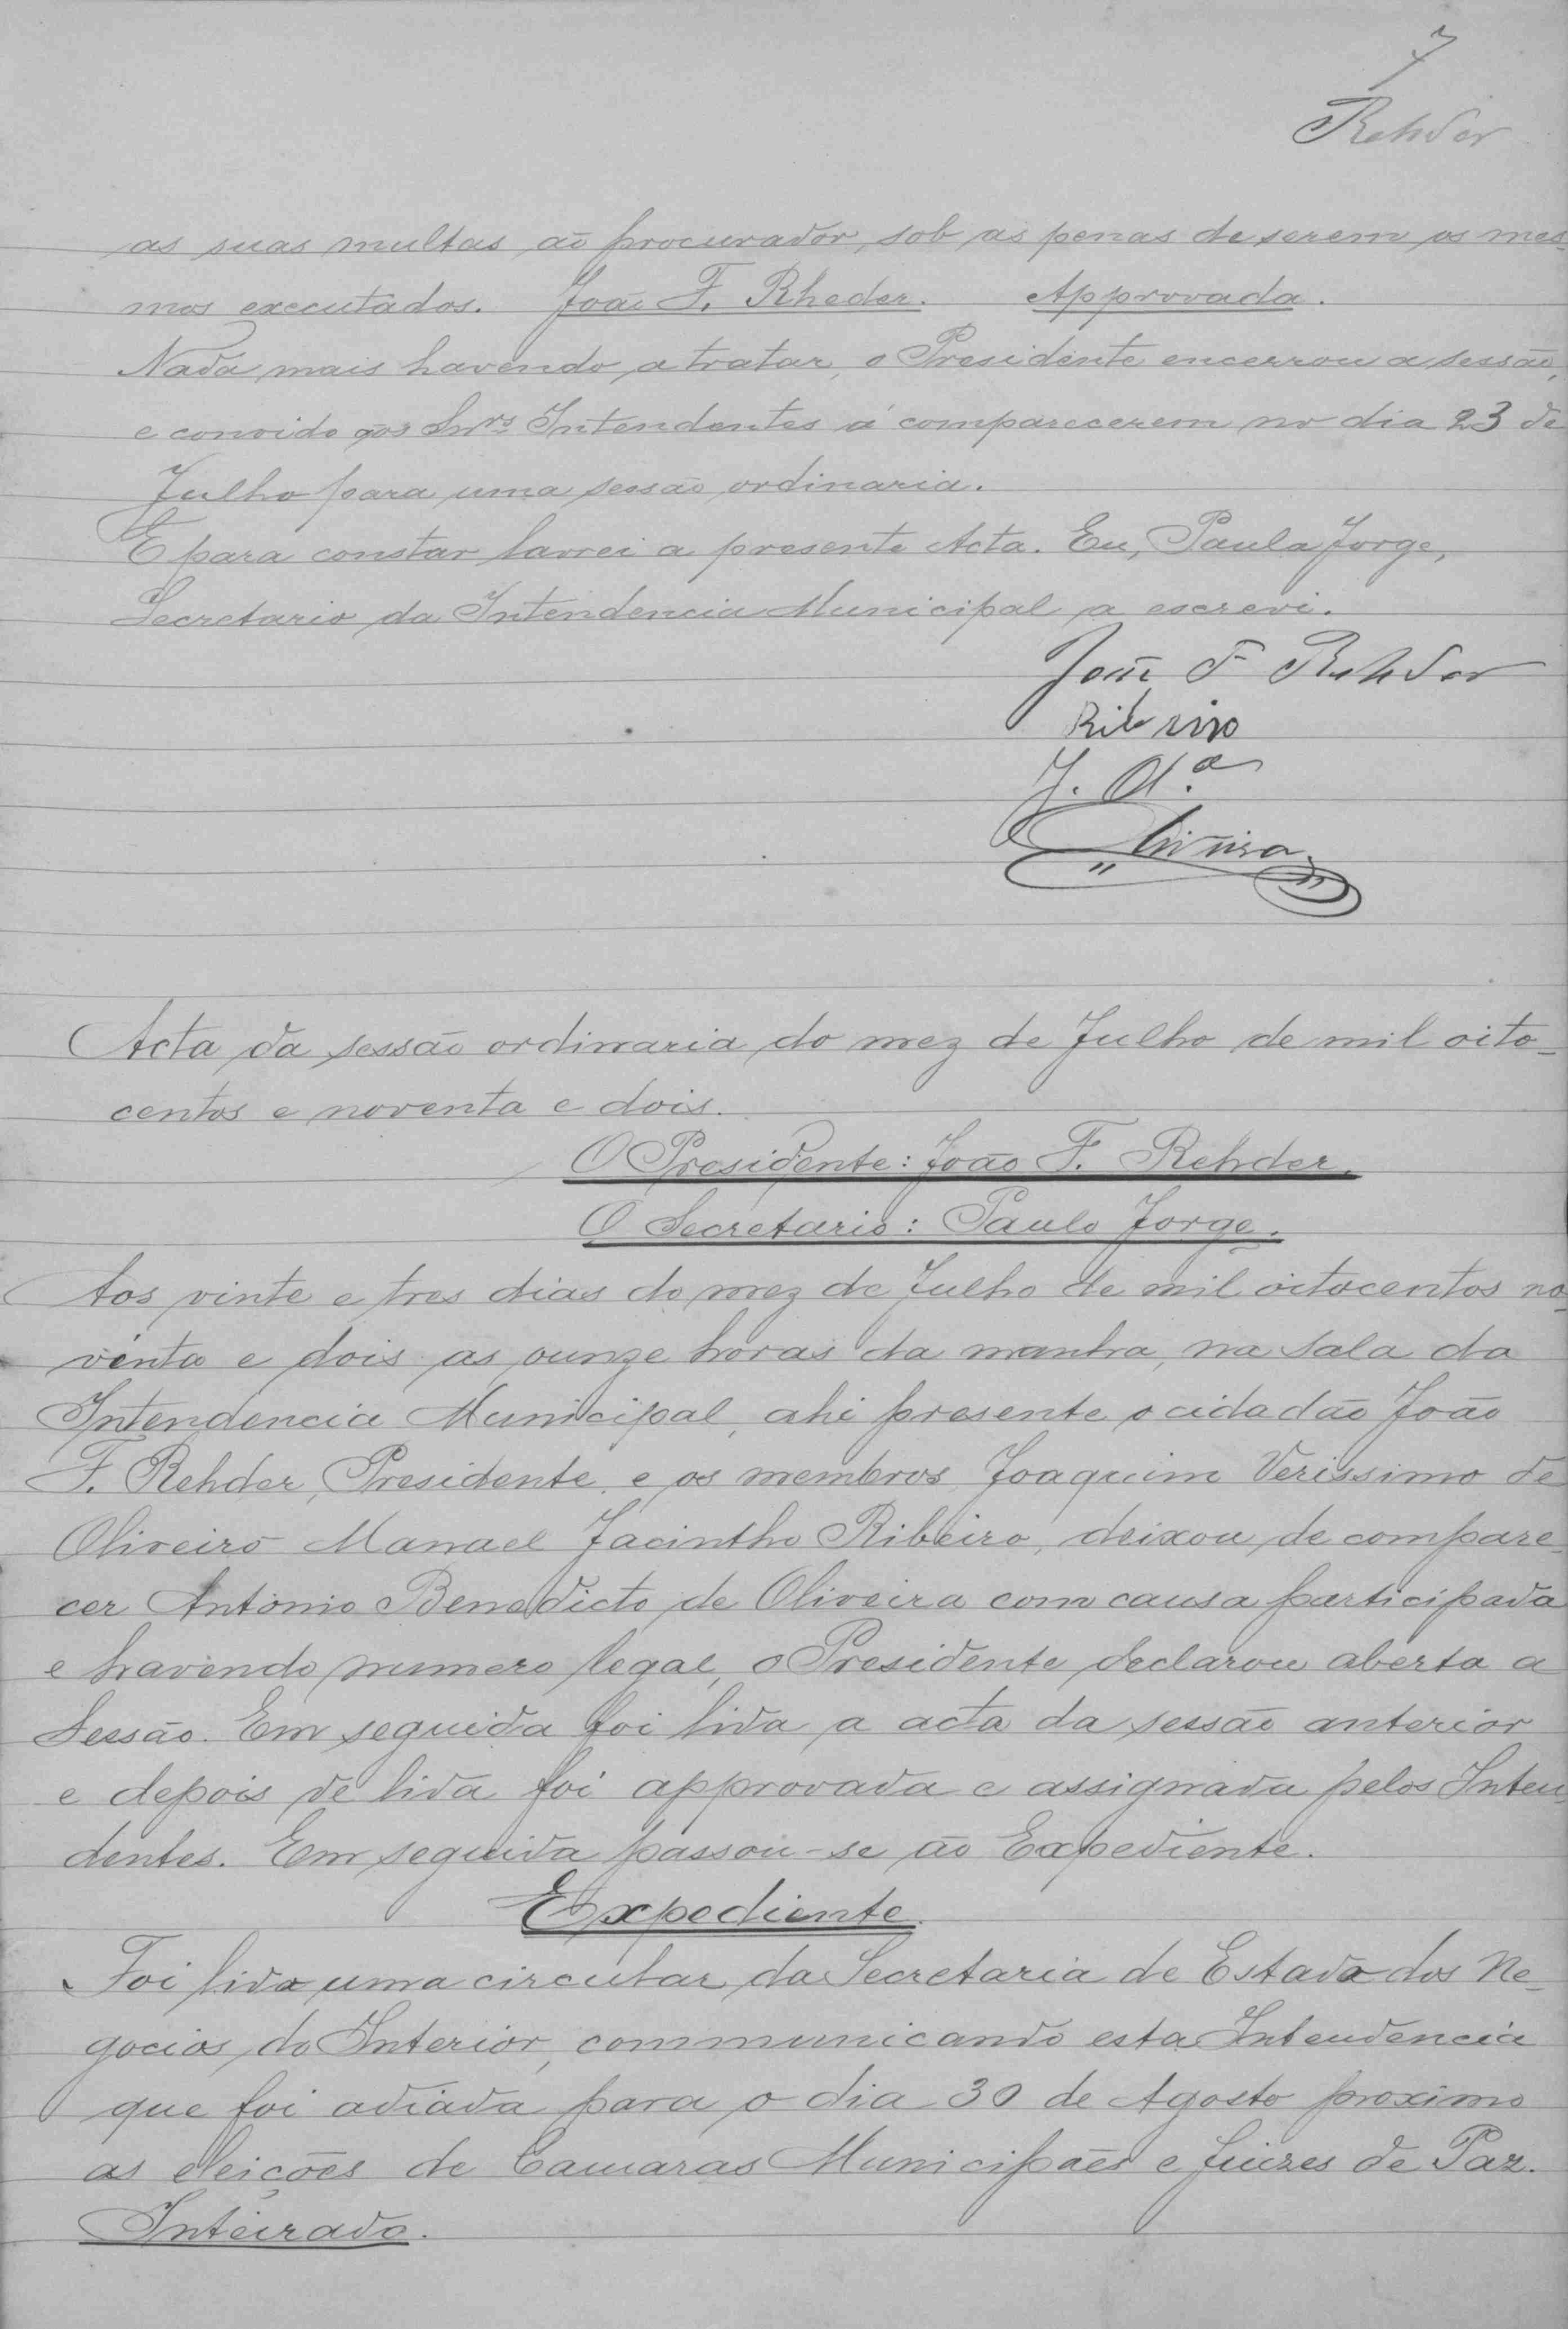 7
Rehder
as suas multas ao procurador, sob as penas de serem os mes-
mos executados. João F. Rheder. Approvada.
Nada mais havendo a tratar, o Presidente encerrou a sessão,
e convido aos Snrs Intendentes á comparecerem no dia 23 de
Julho para uma sessão ordinaria.
E para constar lavrei a presente Acta. Eu, Paula Jorge,
Secretario da Intendencia Municipal a escrevi.
João F Rehder
Ribeiro
J. Ol.a
Oliveira
Acta da sessão ordinaria do mez de Julho de mil oito-
centos e noventa e dois.
O Presidente: João F. Rehder.
O Secretario: Paulo Jorge.
Aos vinte e tres dias do mez de Julho de mil oitocentos no-
venta e dois as ounze horas da manha, na Sala da
Intendencia Municipal, ahi presente o cidadão João
F. Rehder, Presidente, e os membros Joaquim Verissimo de
Oliveiro Manael Jacintho Ribeiro, deixou de compare-
cer Antonio Benedicto de Oliveira com causa participada
e havendo numero legal, o Presidente declarou aberta a
Sessão. Em seguida foi lida a acta da sessão anterior
e depois de lida foi approvada e assignada pelos Inten-
dentes. Em seguida passou-se ao Expediente.
Expediente.
Foi lida uma circular da Secretaria de Estado dos Ne-
gocios do Interior, communicando esta Intendencia
que foi adiada para o dia 30 de Agosto proximo
as eleições de Camaras Municipães e Juizes de Paz.
Inteirado.